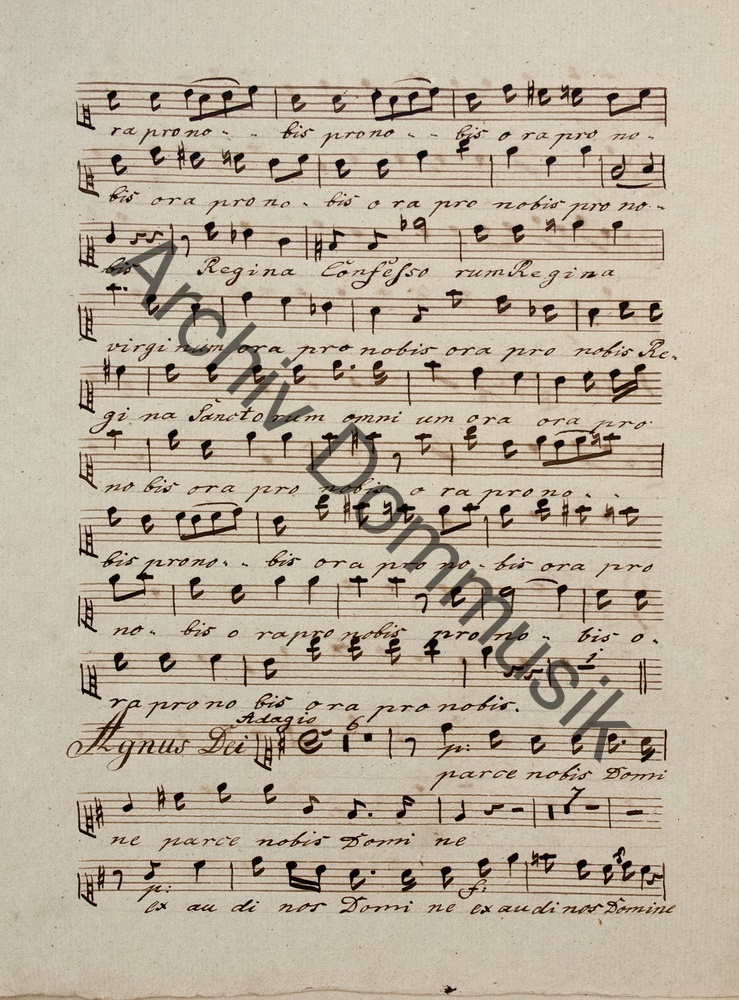 ra pro no - - bis pro no - - bis o ra pro no -
bis ora pro no - bis o ra pro nobis pro no -
bis Regina Confesso rum Regina
virginum ora pro nobis ora pro nobis Re-
gina Sancto rum omni um ora ora pro
no bis ora pro nobis o ra pro no - -
bis pro no - - bis ora pro no - bis ora pro
no - bis o ra pro nobis pro no - bis o -
ra pro no bis o ra pro nobis.
Adagio
6
Agnus Dei
p:
parce nobis Domi
7
ne parce nobis Domi ne
p: f: f
ex au di nos Domi ne ex au di nos Domine
Archiv Dommusik